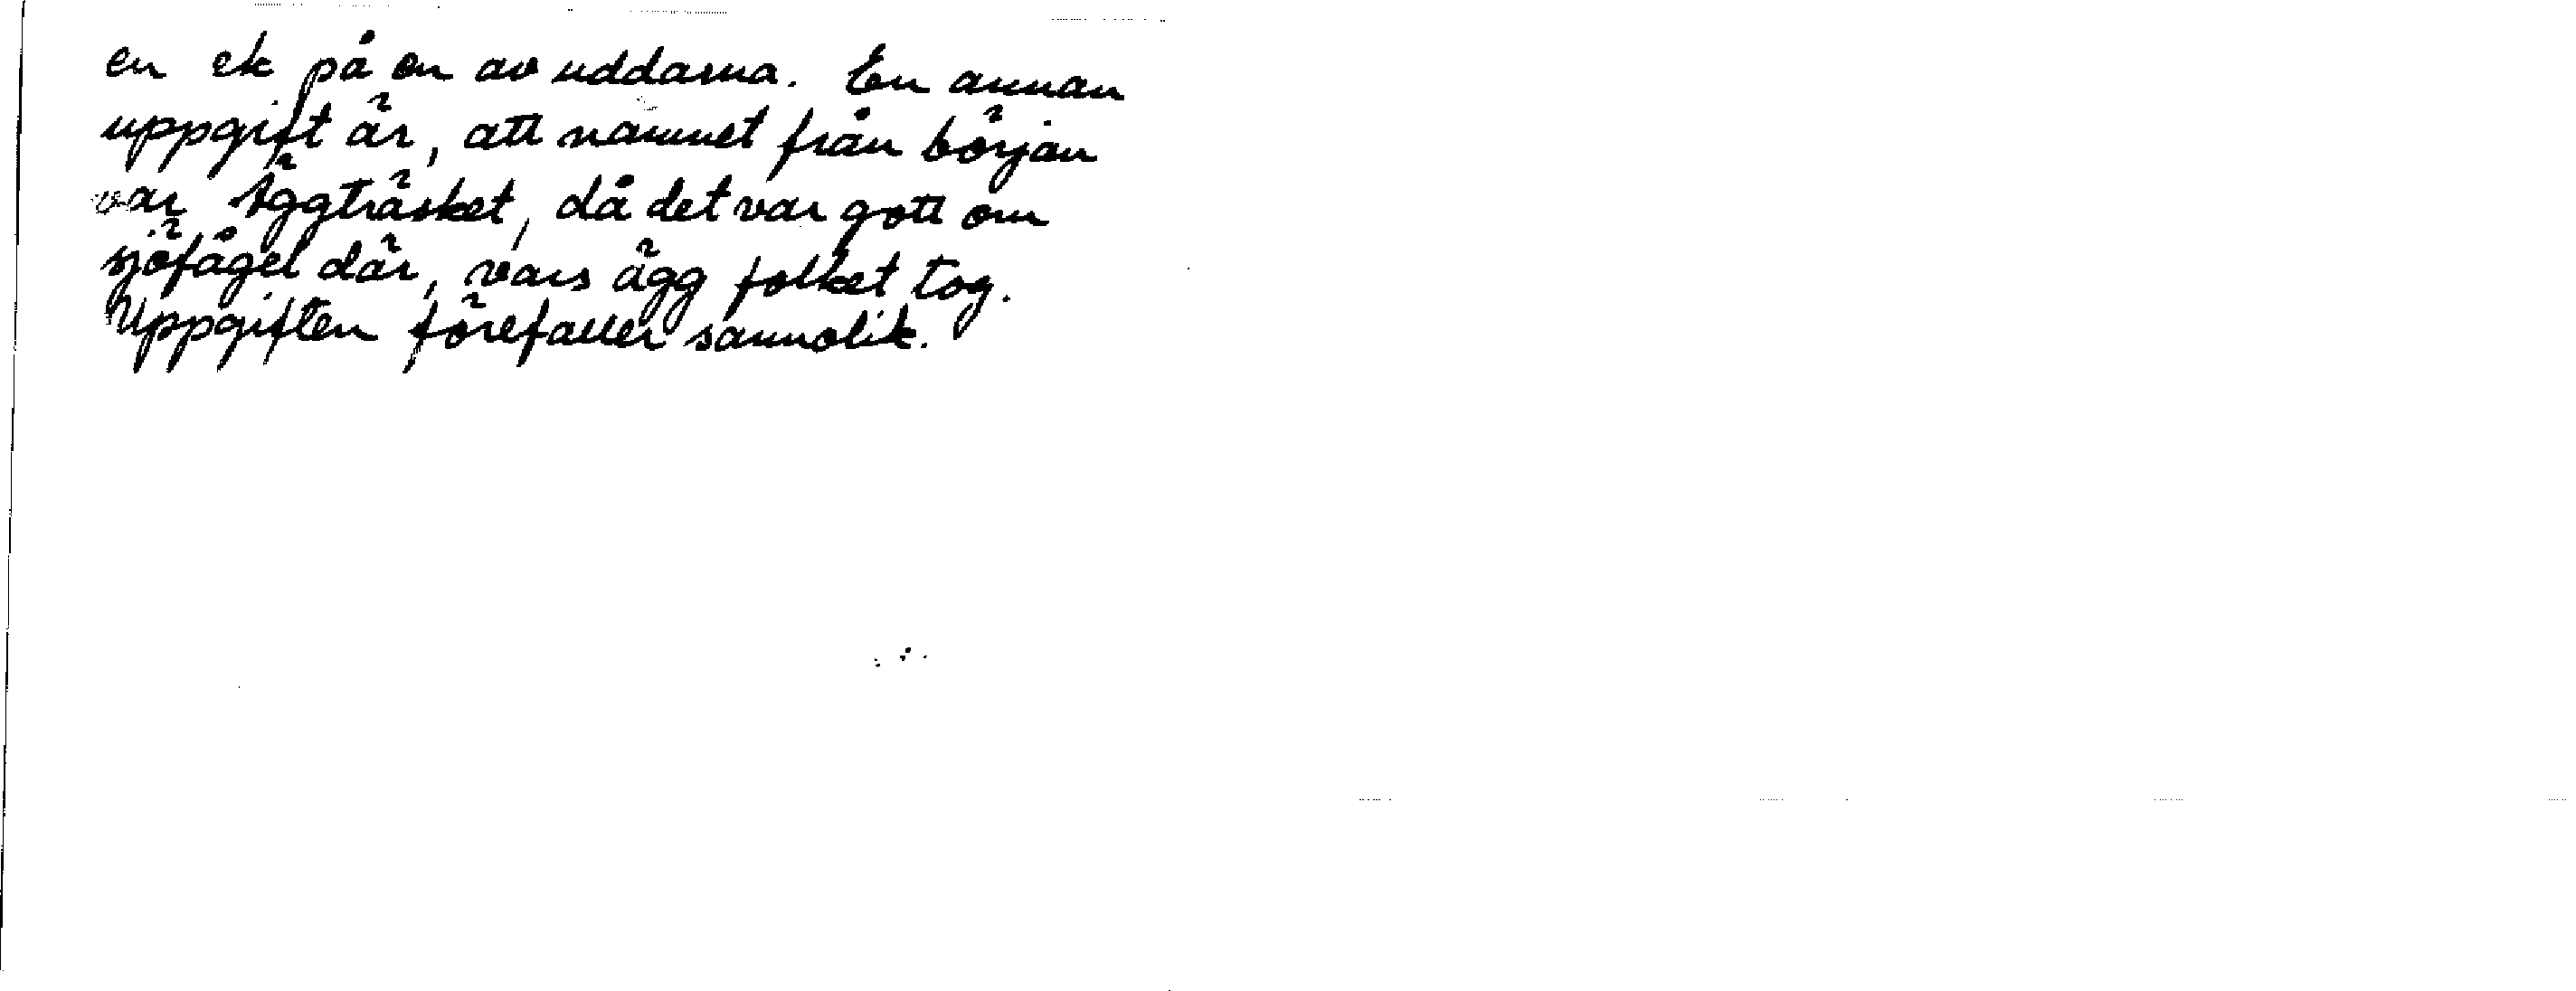 en ek på en av uddarna. En annan
uppgift är, att namnet från början
var Äggträsket, då det var gott om
sjöfågel där, vars ägg folket tog.
Uppgiften förefaller sannolik.